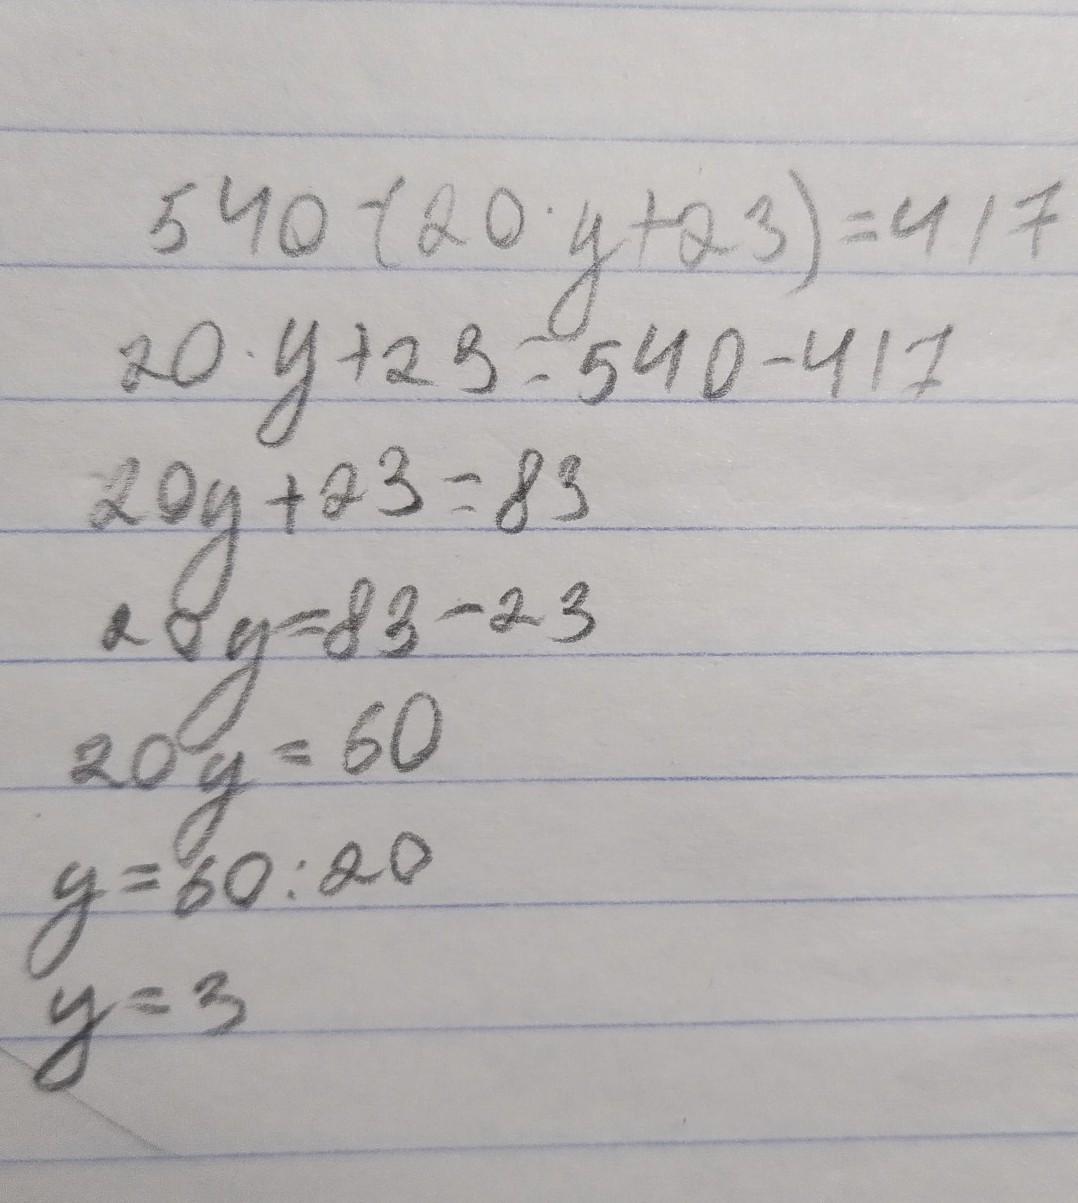 540-(20·y+23)=417
20·y+23=540-417
20y+23=83
20y=83-23
20y=60
y=60:20
y=3